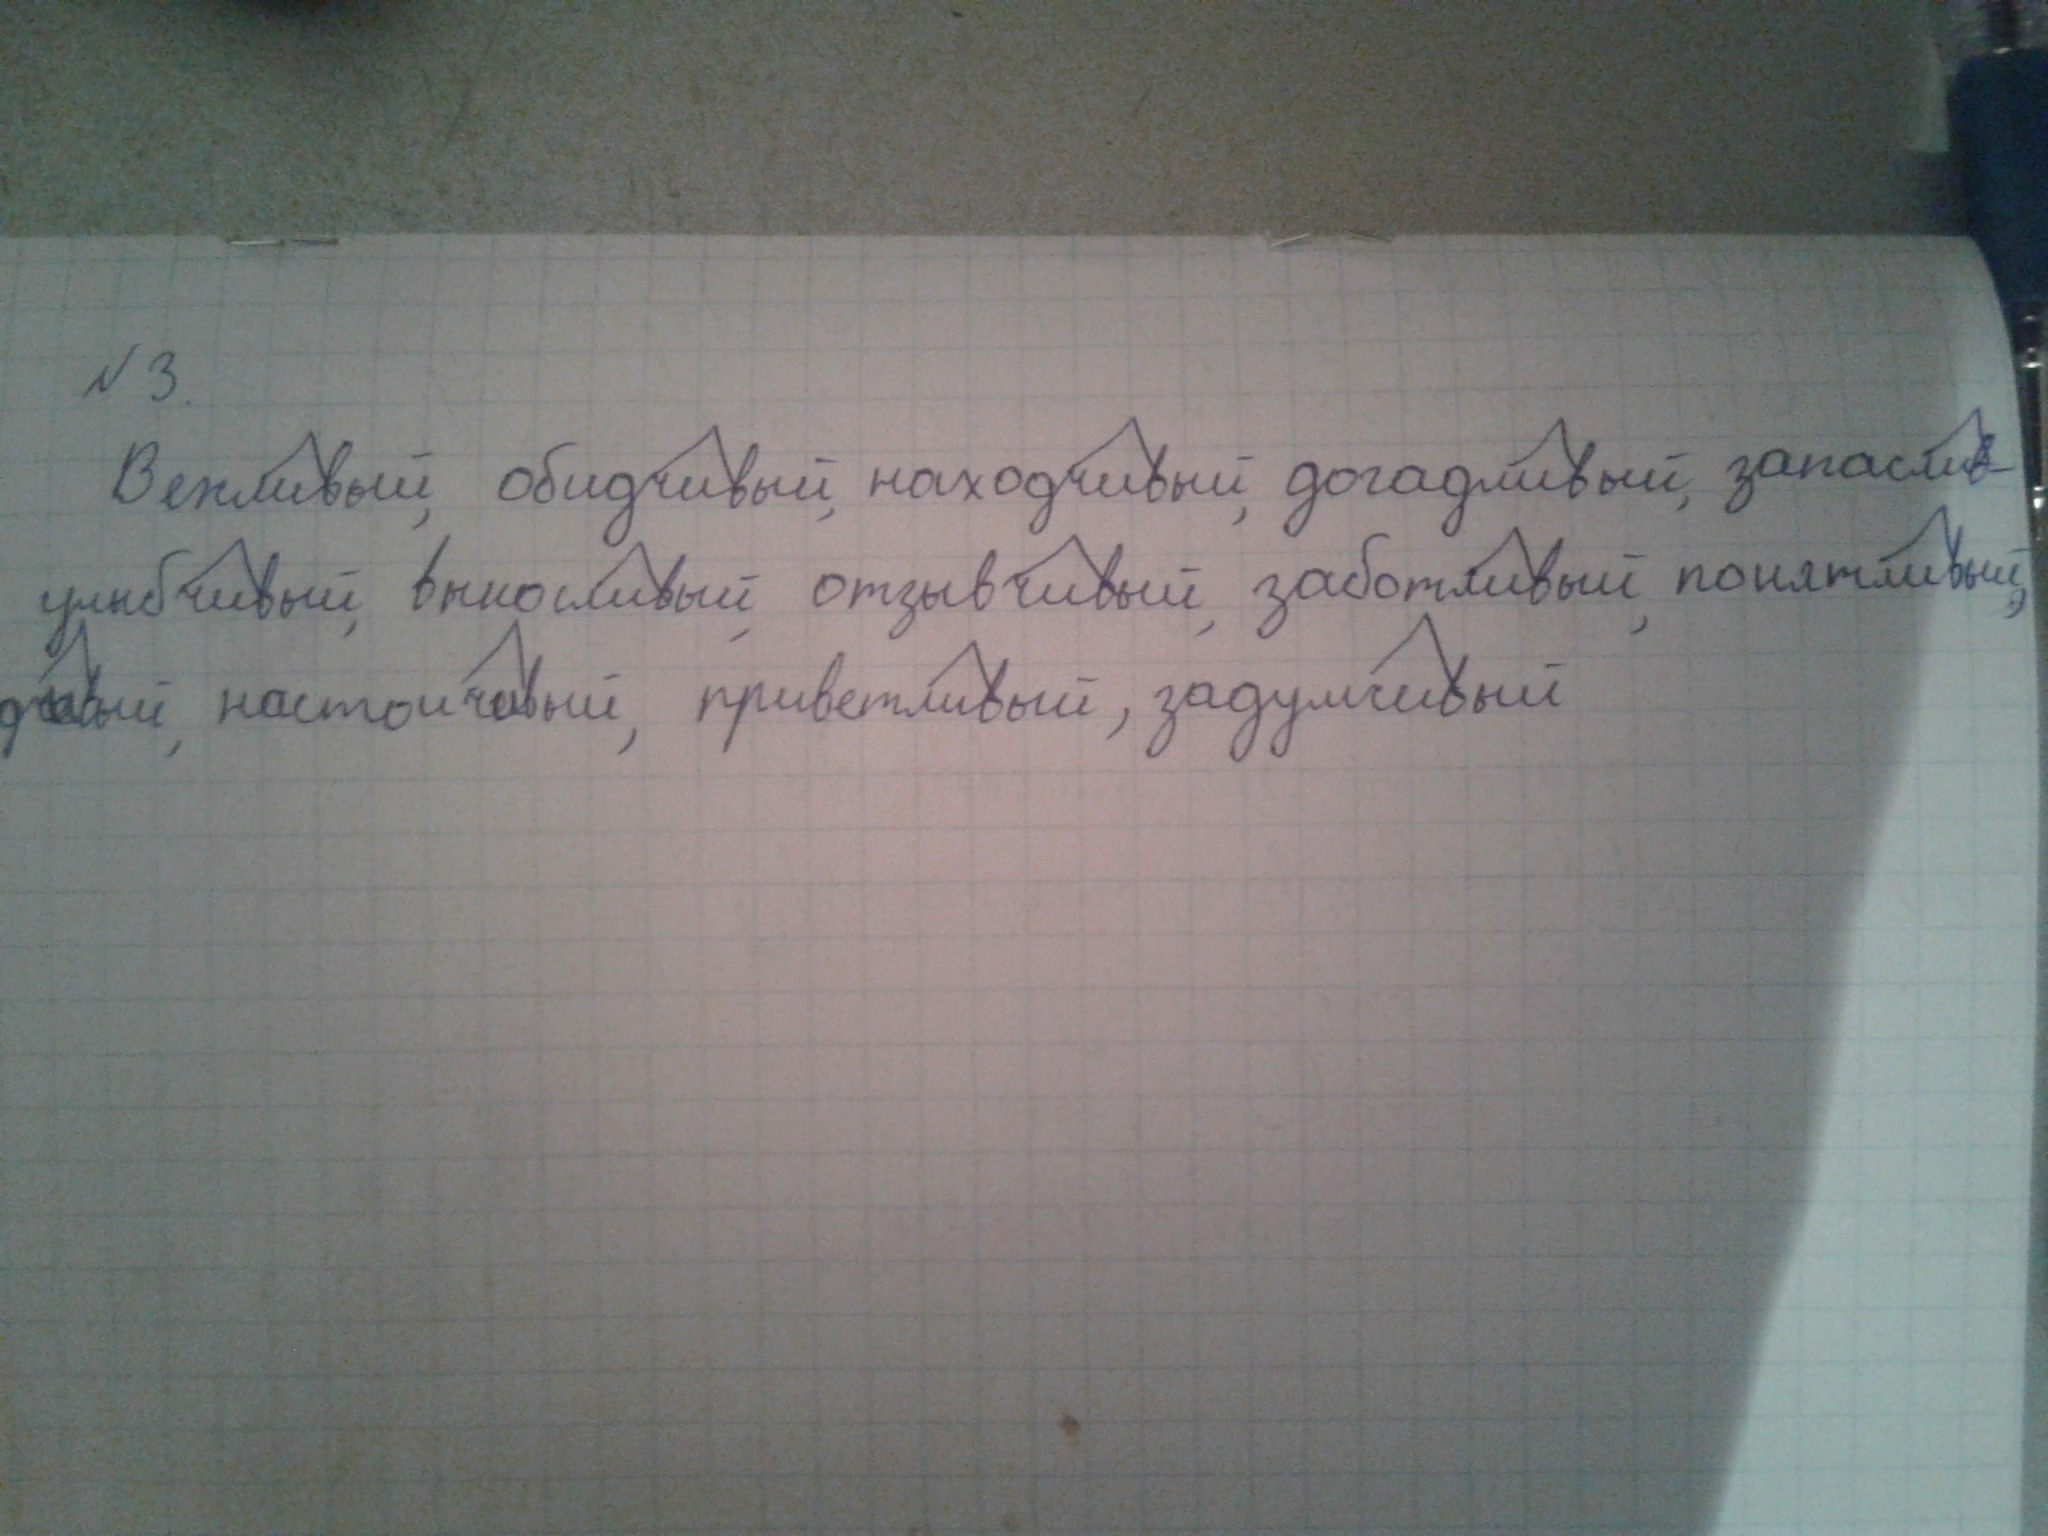 N 3.
Вежливый, обидчивый, находчивый, догадливый, запаслив-
улыбчивый, выносливый, отзывчивый, заботливый, понятливый,
настойчивый, приветливый, задумчивый